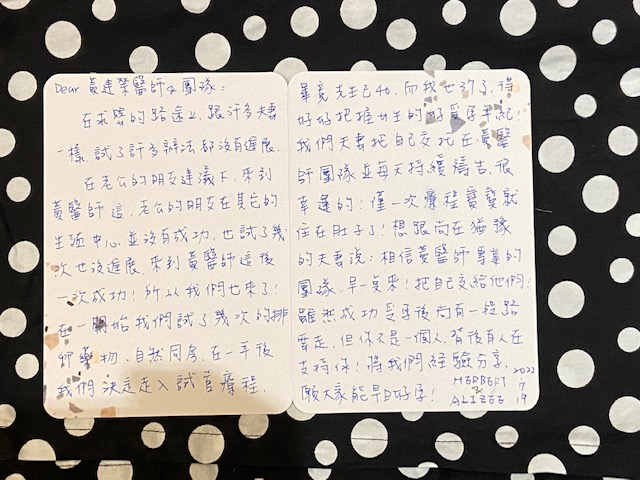 Dear 黃建榮醫師&團隊：
在求孕的路途上，跟許多夫妻
一樣，試了許多辦法都沒有進展，
在老公的朋友建議下，來到
黃醫師這，老公的朋友在其它的
生殖中心，並沒有成功，也試了幾
次也沒進展，來到黃醫師這後
一次成功！所以我們也來了！
在一開始我們試了幾次的排
卵藥物、自然同房，在一年後
我們決定走入試管療程，
畢竟先生已40，而我也37了，得
好好把握女生的好受孕年紀！
我們夫妻把自己交托在黃醫
師團隊並每天持續禱告，很
幸運的！僅一次療程寶寶就
住在肚子了！想跟尚在猶豫
的夫妻說：相信黃醫師專業的
團隊，早一點來！把自己交給他們！
雖然成功受孕後尚有一段路
要走，但你不是一個人，背後有人在
支持你！將我們經驗分享，
願大家能早日好孕！
HERBERT
&
ALIZEE
2022
7
19